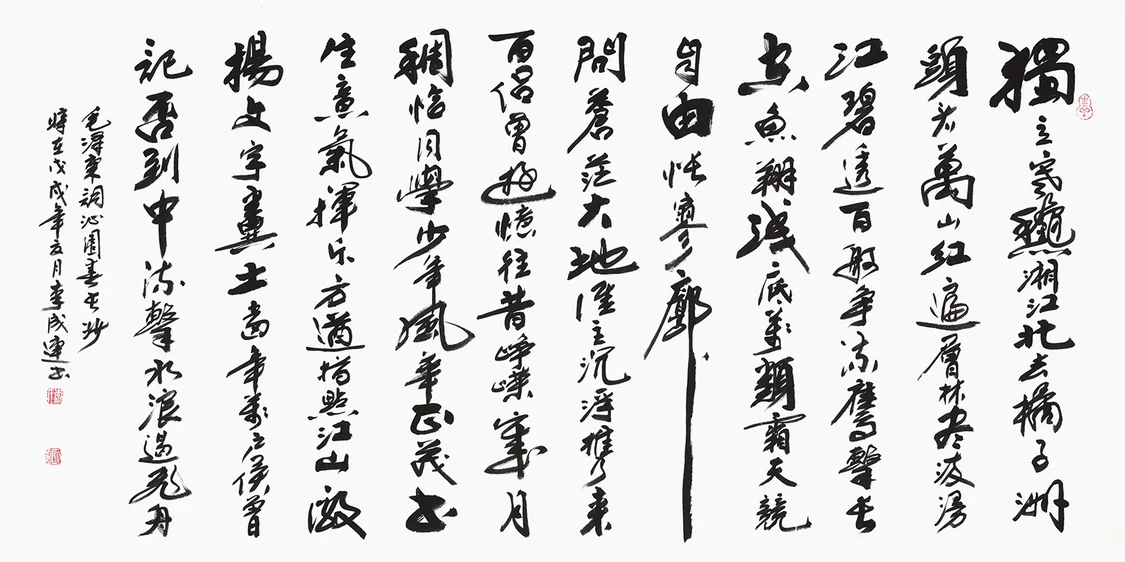 獨立寒穐湘江北去橘子洲
頭看萬山紅遍層林尽染漫
江碧透百舸争流鷹擊长
空魚翔淺底萬類霜天競
自由悵寥廓
問蒼茫大地谁主沉浮携来
百侣曾遊憶往昔崢嶸歲月
稠恰同學少年風華正茂书
生意氣揮斥方遒指點江山激
揚文字糞土當年萬户侯曾
記否到中流擊水浪遏飛舟
毛澤東詞沁園春长沙
時在戊戌年亥月李成連书